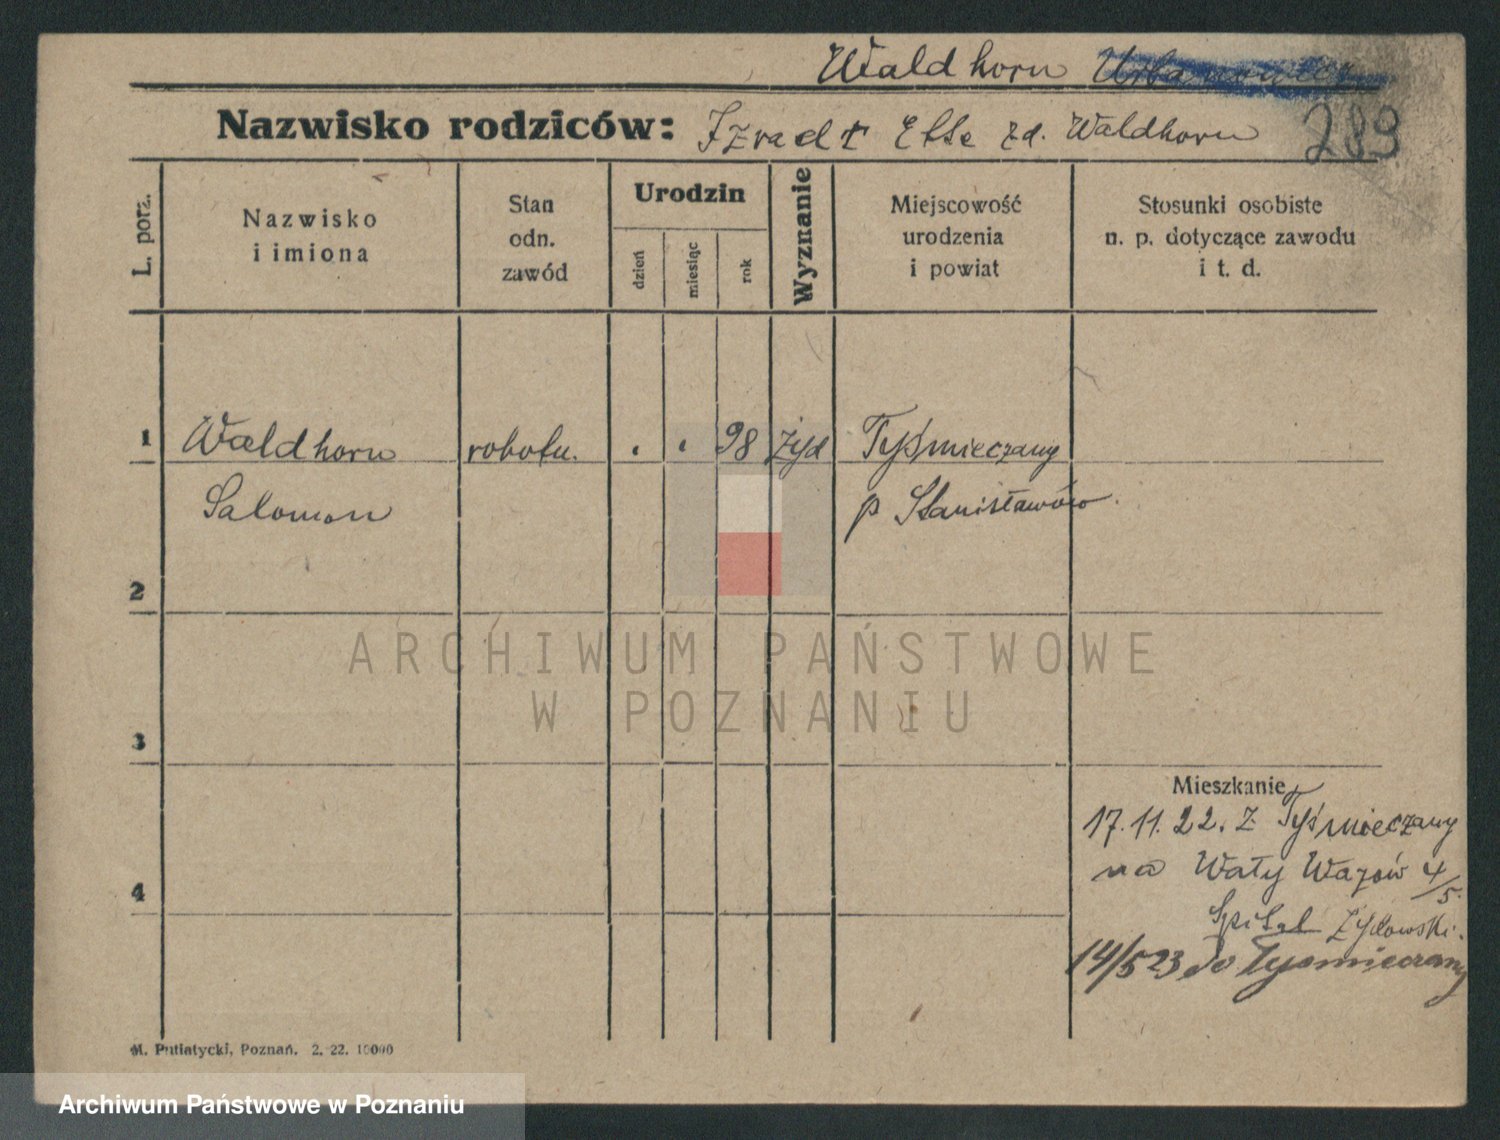 Waldhorn
Nazwisko rodziców: Else zd. Waldhorn 289
L. porz.
Nazwisko
i imiona
Stan
odn.
zawód
Urodzin
dzień
miesiąc
rok
Wyznanie
Miejscowość
urodzenia
i powiat
Stosunki osobiste
n. p. dotyczące zawodu
i t. d.
1 Waldhorn robotn. 98 Żyd Tyśmieczany
Salomon p Stanisławów
2
3
4
Mieszkanie
17.11.22. z Tyśmieczany
na Wały Wazów 4/5.
Szpital Żydowski.
14/5 23 do Tysmieczany
M. Putiatycki, Poznań. 2. 22. 10000
ARCHIWUM PAŃSTWOWE
W POZNANIU
Archiwum Państwowe w Poznaniu